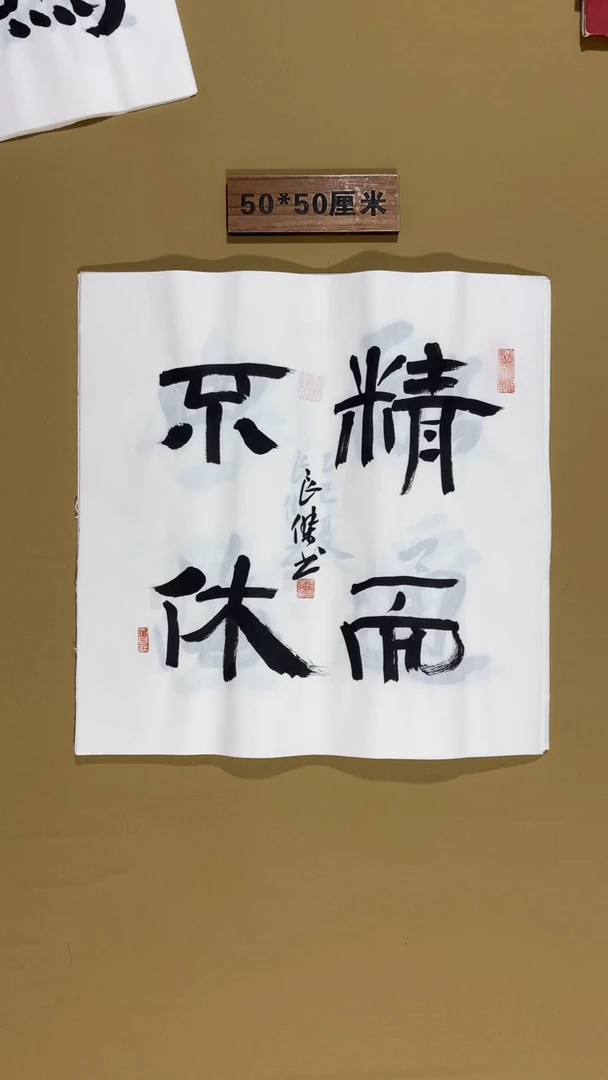 50*50厘米
精而
不休
良傑书